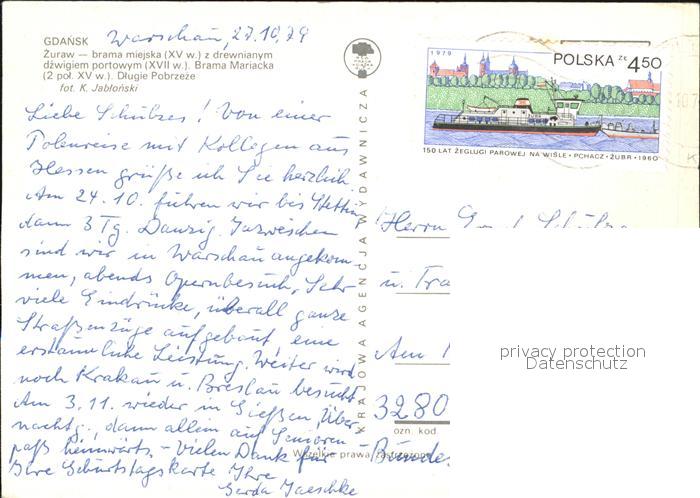 Warschau, 27.10.79
GDAŃSK
Żuraw — brama miejska (XV w.) z drewnianym
dźwigiem portowym (XVII w.). Brama Mariacka
(2 poł. XV w.). Długie Pobrzeże
fot. K. Jabłoński
Liebe Schülzes! Von einer
Polenreise mit Kollegen aus
Hessen grüße ich Sie herzlich.
Am 24.10. fuhren wir bis Stettin,
dann 3 Tg. Danzig. Inzwischen
sind wir in Warschau angekom-
men, abends Opernbesuch, Sehr
viele Eindrücke, überall ganze
Straßenzüge aufgebaut, eine
erstaunliche Leistung. Weiter wird
noch Krakau u. Breslau besucht.
Am 3.11. wieder in Gießen, Über-
nachtg., dann allein auf Senioren-
paß heimwärts. - Vielen Dank für
Ihre Geburtstagskarte Ihre
Gerda Jaeschke
KRAJOWA AGENCJA WYDAWNICZA
Wszelkie prawa zastrzeżone
1979
POLSKA ZŁ 4,50
150 LAT ŻEGLUGI PAROWEJ NA WIŚLE • PCHACZ • ŻUBR • 1960
Herrn
u. Tra
Am
3280
ozn. kod.
Bundes
privacy protection
Datenschutz